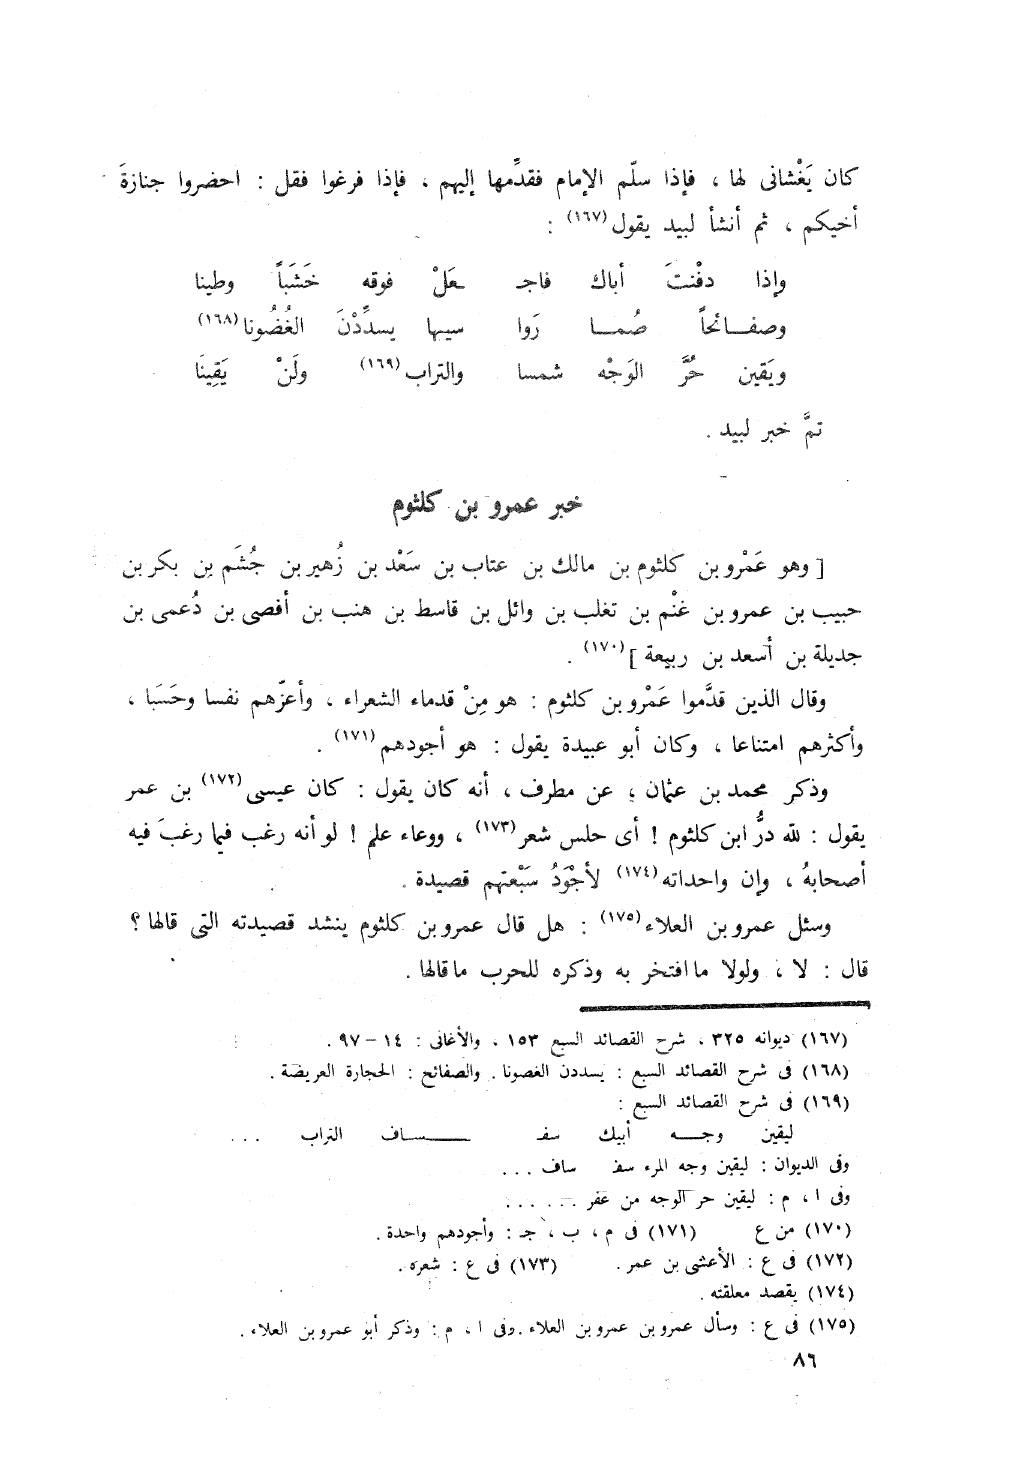 كان يَغْشانى لها ، فإذا سلّم الإمام فقدِّمها إليهم ، فإذا فرغوا فقل : احضروا جنازةَ
أخيكم ، ثم أنشأ لبيد يقول(١٦٧) :
وإذا دفْنتَ أباك فاجـ ـعَلْ فوقه خَشَباً وطينا
وصفـائحاً صُمـا رَوا سيها يسدِّدْنَ الغُصُونا(١٦٨)
ويَقين حُرَّ الوَجْه شمسا والتراب(١٦٩) ولَنْ يَقِينَا
تمَّ خبر لبيد .
خبر عمرو بن كلثوم
[ وهو عَمْرو بن كلثوم بن مالك بن عتاب بن سَعْد بن زُهير بن جُشَم بن بكر بن
حبيب بن عمرو بن غنْم بن تغلب بن وائل بن قاسط بن هنب بن أفصى بن دُعمى بن
جديلة بن أسعد بن ربيعة ](١٧٠) .
وقال الذين قدَّموا عَمْرو بن كلثوم : هو مِنْ قدماء الشعراء ، وأعزّهم نفسا وحَسَبا ،
وأكثرهم امتناعا ، وكان أبو عبيدة يقول : هو أجودهم(١٧١) .
وذكر محمد بن عثمان ، عن مطرف ، أنه كان يقول : كان عيسى(١٧٢) بن عمر
يقول : لله درُّ ابن كلثوم ! أى حلس شعر(١٧٣) ، ووعاء علم ! لو أنه رغب فيما رغبَ فيه
أصحابهُ ، وإن واحداته(١٧٤) لأجْوَدُ سَبْعتهم قصيدة .
وسئل عمرو بن العلاء(١٧٥) : هل قال عمرو بن كلثوم ينشد قصيدته التى قالها ؟
قال : لا ، ولولا ما افتخر به وذكره للحرب ما قالها .
(١٦٧) ديوانه ٣٢٥ ، شرح القصائد السبع ١٥٣ ، والأغانى : ١٤ – ٩٧ .
(١٦٨) فى شرح القصائد السبع : يسددن الغصونا . والصفائح : الحجارة العريضة .
(١٦٩) فى شرح القصائد السبع :
ليقين وجـه أبيك سفـ ـساف التراب ...
وفى الديوان : ليقين وجه المرء سفـ ساف ...
وفى ا ، م : ليقين حر الوجه من عفر ......
(١٧٠) من ع (١٧١) فى م ، ب ، جـ : وأجودهم واحدة .
(١٧٢) فى ع : الأعشى بن عمر . (١٧٣) فى ع : شعره .
(١٧٤) يقصد معلقته .
(١٧٥) فى ع : وسأل عمرو بن عمرو بن العلاء . وفى ا ، م : وذكر أبو عمرو بن العلاء .
٨٦